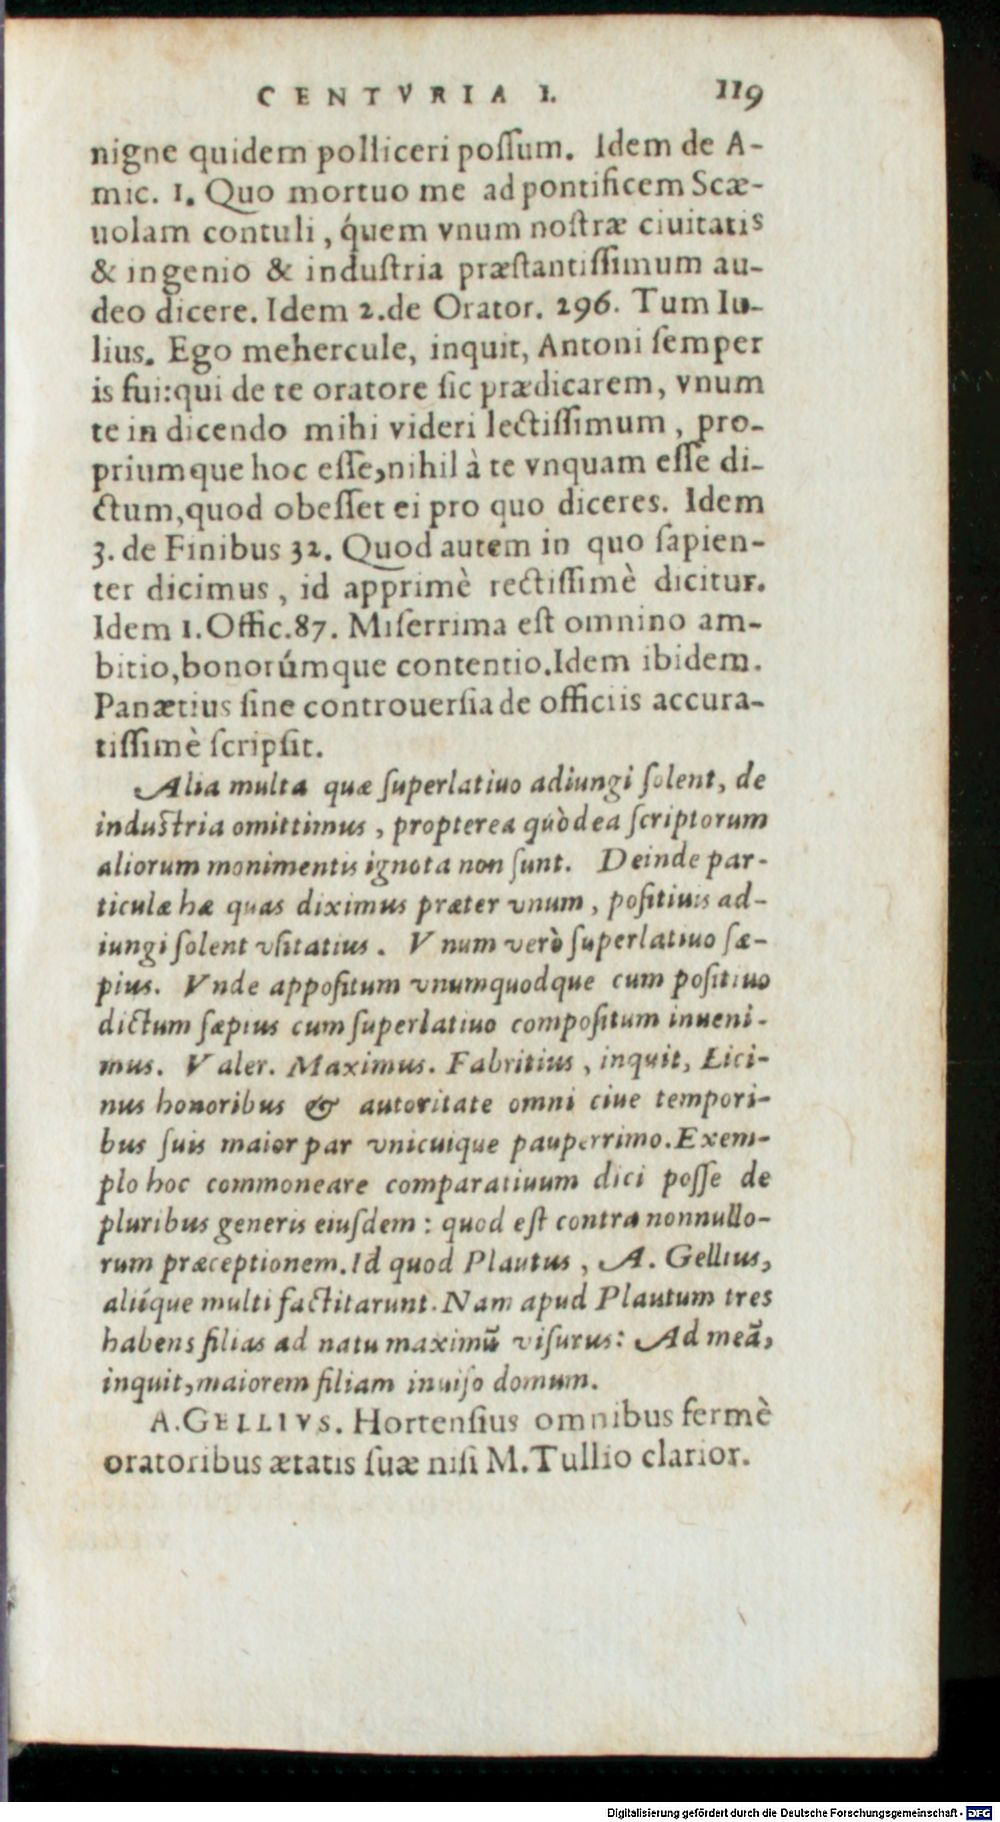 CENTVRIA I. 119
nigne quidem polliceri poſſum. Idem de A-
mic. 1. Quo mortuo me ad pontificem Scæ-
uolam contuli, quem vnum noſtræ ciuitatis
& ingenio & induſtria præſtantiſſimum au-
deo dicere. Idem 2.de Orator. 296. Tum Iu-
lius. Ego mehercule, inquit, Antoni ſemper
is fui:qui de te oratore ſic prædicarem, vnum
te in dicendo mihi videri lectiſſimum, pro-
priumque hoc eſſe,nihil à te vnquam eſſe di-
ctum,quod obeſſet ei pro quo diceres. Idem
3. de Finibus 32. Quod autem in quo ſapien-
ter dicimus, id apprimè rectiſſimè dicitur.
Idem 1.Offic.87. Miſerrima eſt omnino am-
bitio,bonorúmque contentio.Idem ibidem.
Panætius ſine controuerſia de officiis accura-
tiſſimè ſcripſit.
Alia multa quæ ſuperlatiuo adiungi ſolent, de
induſtria omittimus, propterea quòd ea ſcriptorum
aliorum monimentis ignota non ſunt. Deinde par-
ticulæ hæ quas diximus præter vnum, poſitiuis ad-
iungi ſolent vſitatius. Vnum verò ſuperlatiuo ſæ-
pius. Vnde appoſitum vnumquodque cum poſitiuo
dictum ſæpius cum ſuperlatiuo compoſitum inueni-
mus. Valer. Maximus. Fabritius, inquit, Lici-
nus honoribus & autoritate omni ciue tempori-
bus ſuis maior par vnicuique pauperrimo.Exem-
plo hoc commoneare comparatiuum dici poſſe de
pluribus generis eiuſdem: quod eſt contra nonnullo-
rum præceptionem.Id quod Plautus, A. Gellius,
aliíque multi factitarunt.Nam apud Plautum tres
habens filias ad natu maximū viſurus: Ad meā,
inquit,maiorem filiam inuiſo domum.
A.GELLIVS. Hortenſius omnibus fermè
oratoribus ætatis ſuæ niſi M.Tullio clarior.
Digitalisierung gefördert durch die Deutsche Forschungsgemeinschaft - DFG